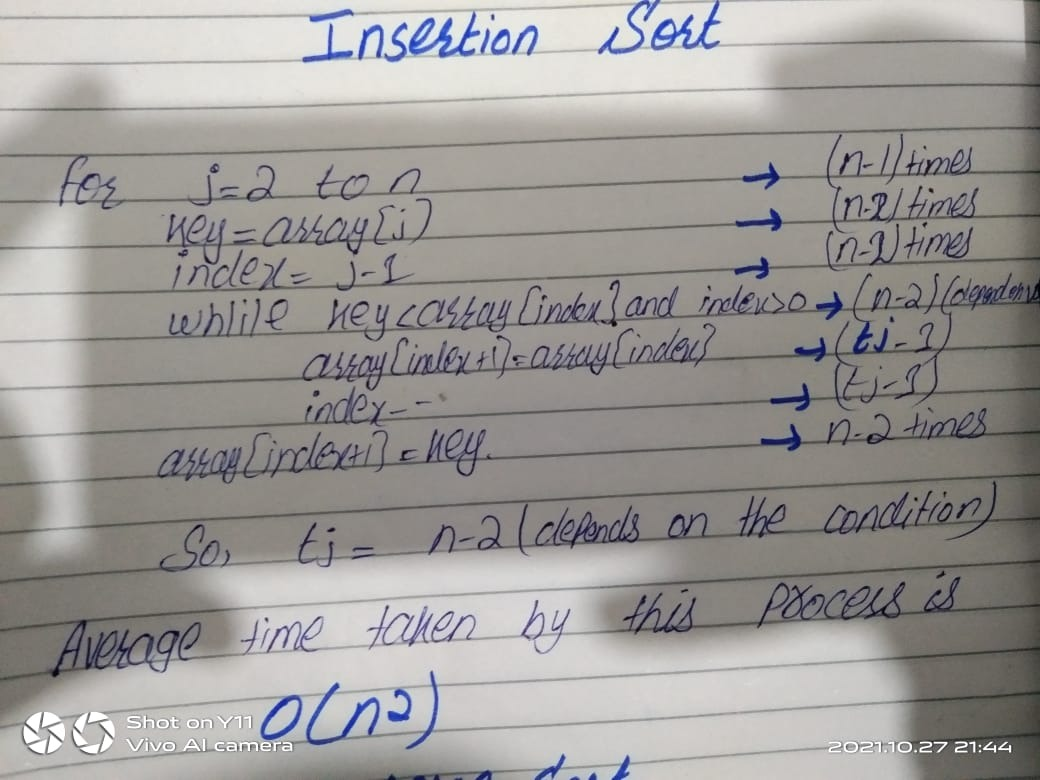 Insertion Sort
for j=2 to n → (n-1) times
key=array[j] → (n-2) times
index= j-1 → (n-2) times
whlile key<array[index] and index>0 → (n-2) (depends
array[index+1]=array[index] → (tj-1)
index-- → (tj-1)
array[index+1] = key. → n-2 times
So, tj = n-2 (depends on the condition)
Average time taken by this process is
O(n2)
Shot on Y11
Vivo AI camera
2021.10.27 21:44
Sort